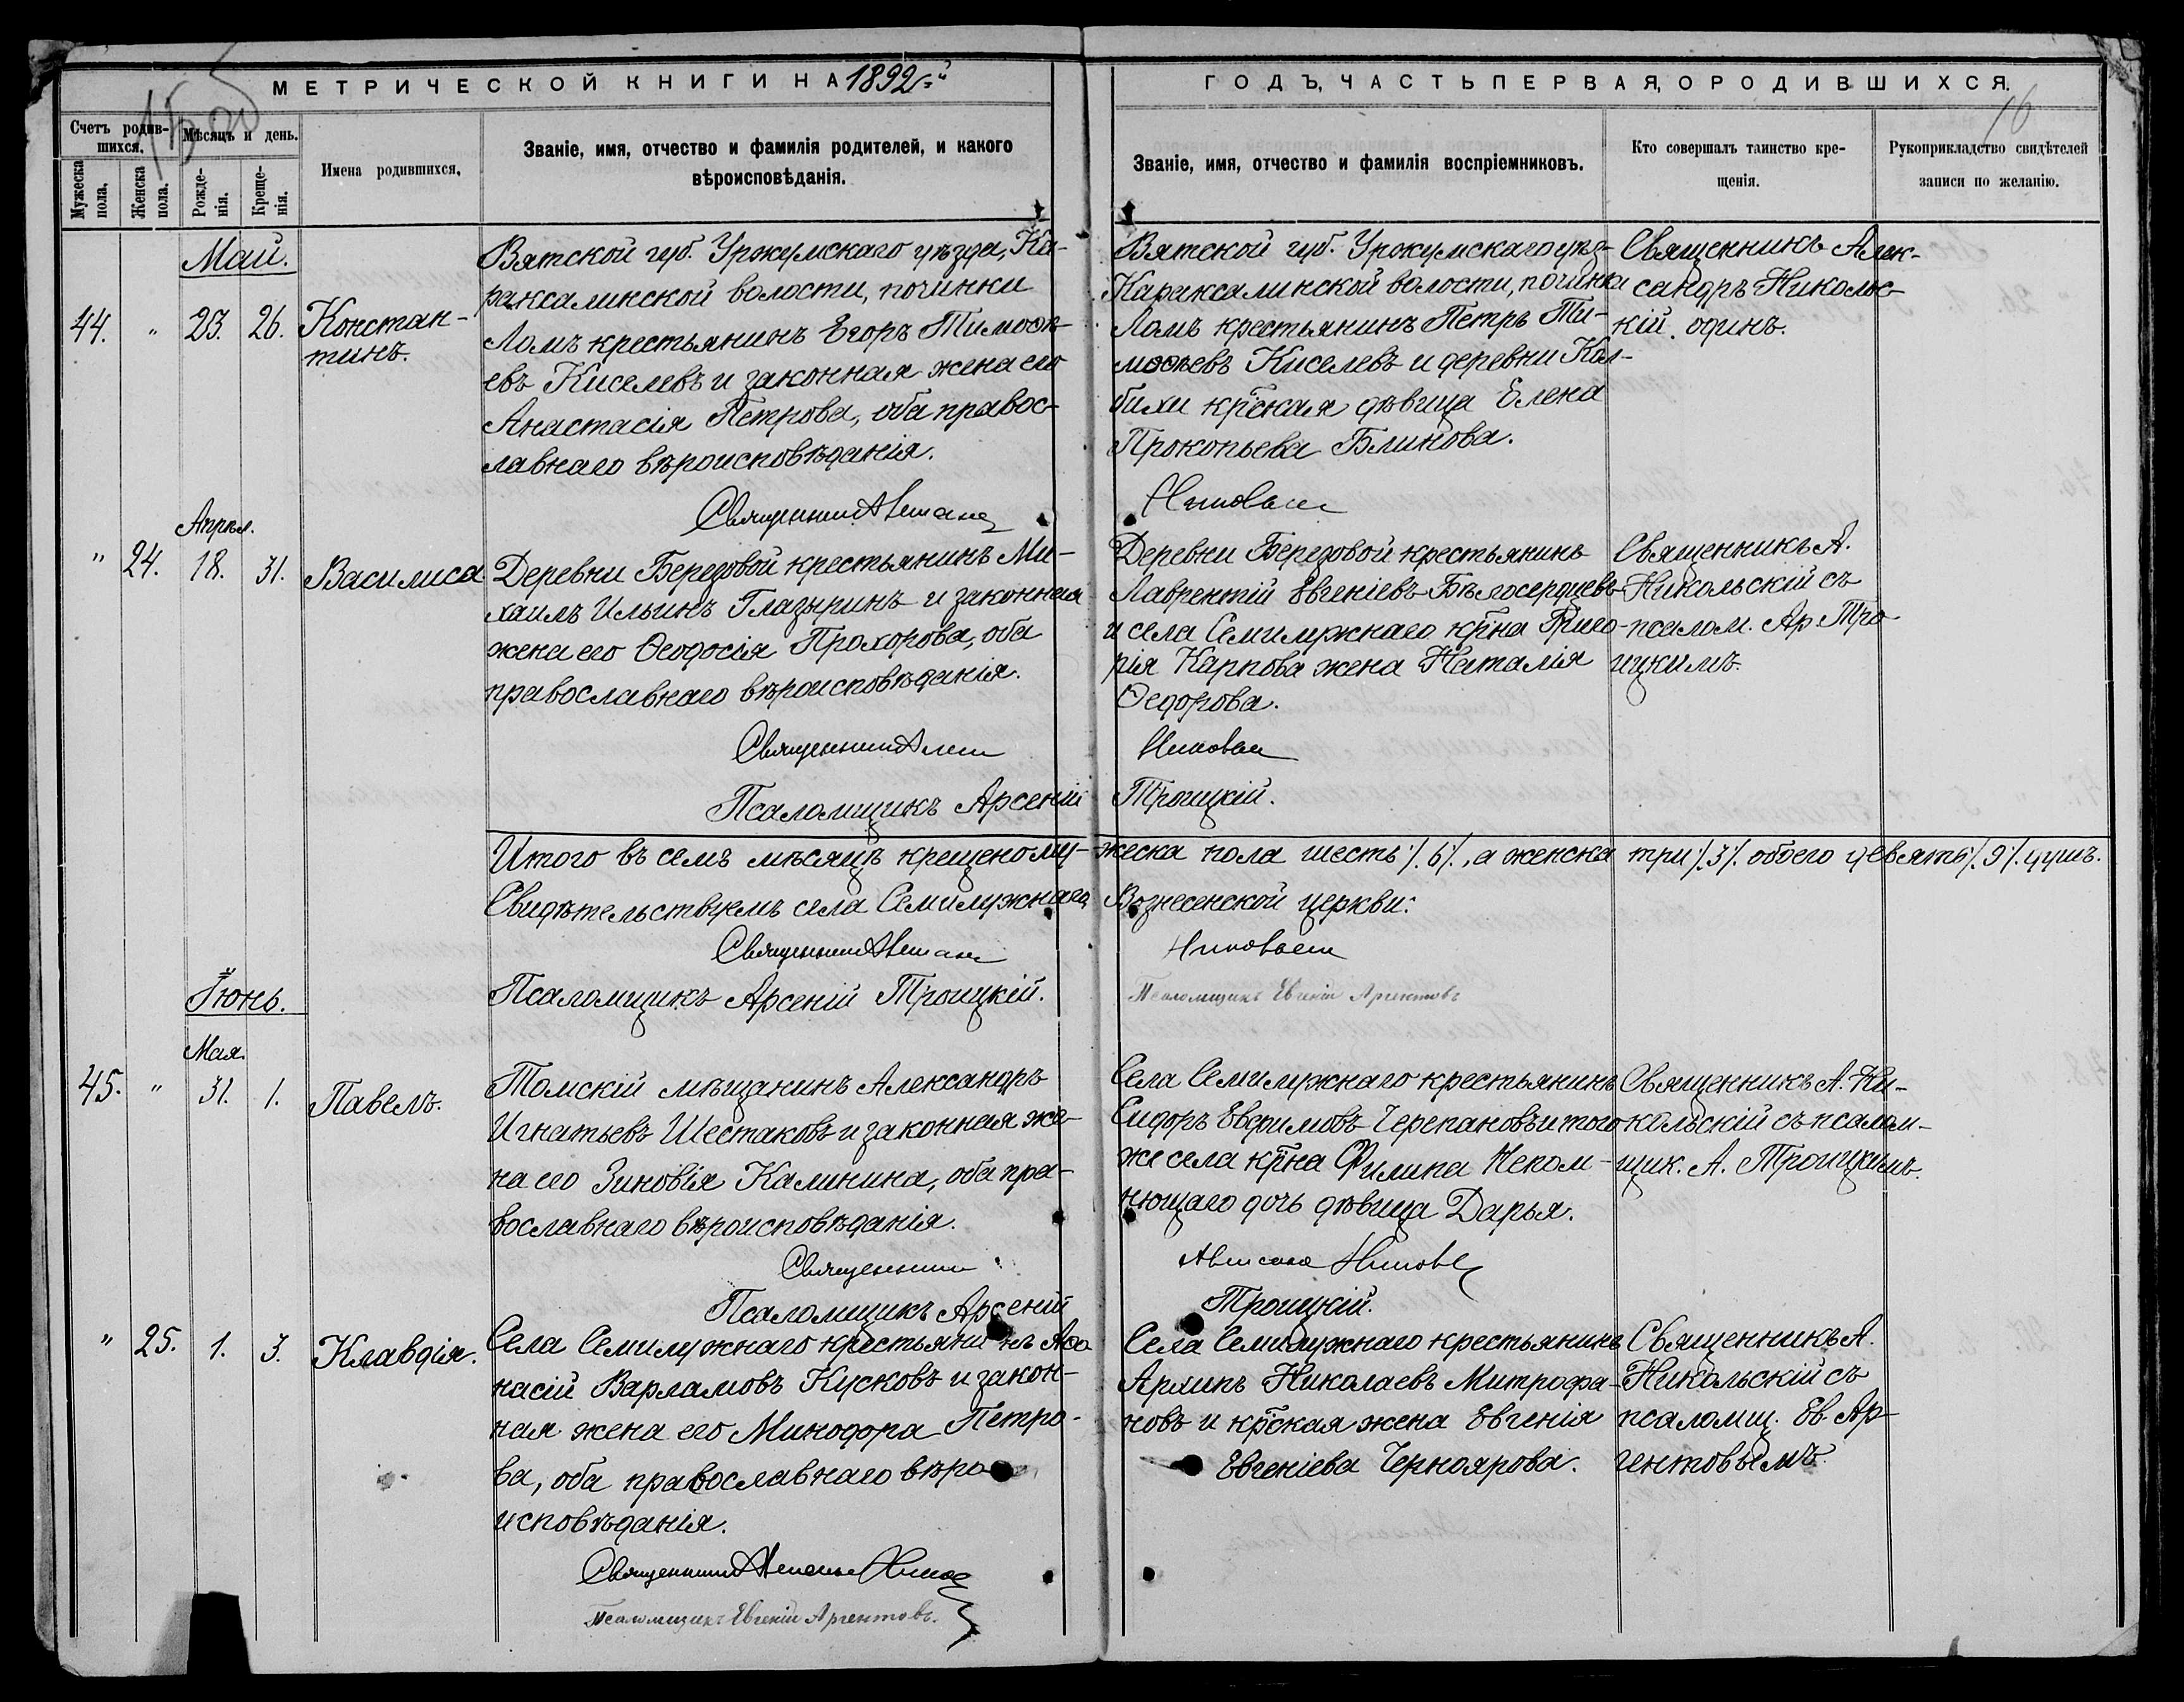 МЕТРИЧЕСКОЙ КНИГИ НА 1892й
ГОДЪ, ЧАСТЬ ПЕРВАЯ, О РОДИВШИХСЯ.
16
Счетъ родив-
шихся.
Мѣсяцъ и день.
Мужеска
пола.
Женска
пола.
Рожде-
нія.
Креще-
нія.
Имена родившихся.
Званіе, имя, отчество и фамилія родителей, и какого
вѣроисповѣданія.
Званіе, имя, отчество и фамилія воспріемниковъ.
Кто совершалъ таинство кре-
щенія.
Рукоприкладство свидѣтелей
записи по желанію.
Май.
44. " 23. 26. Констан-
тинъ.
Вятской губ. Уржумскаго уѣзда, Ка-
раксалинской волости, починки
Ломъ крестьянинъ Егоръ Тимоѳѣ-
евъ Киселевъ и законная жена его
Анастасія Петрова, оба правос-
лавнаго вѣроисповѣданія.
Священникъ
Вятской губ. Уржумскаго уѣз-
Караксалинской волости, починка
Ломъ крестьянинъ Петръ Ти-
моѳѣевъ Киселевъ и деревни Кол-
бихи кр̃ская дѣвица Елена
Прокопьева Блинова.
Священникъ Алек-
сандръ Николос-
кій. одинъ.
Апрѣл.
" 24. 18. 31. Василиса
Деревни Березовой крестьянинъ Ми-
хаилъ Ильинъ Глазыринъ и законная
жена его Ѳеодосія Прохорова, оба
православнаго вѣроисповѣданія.
Священникъ
Псаломщикъ Арсеній Троицкій.
Деревни Березовой крестьянинъ
Лаврентій Евгеніевъ Бѣлосердцевъ
и села Семилужнаго кр̃на Григо-
рія Карпова жена Наталія
Ѳедорова.
Священникъ А.
Никольскій съ
псалом. Ар. Тро-
ицкимъ.
Итого въ семъ мѣсяцѣ крещено му-жеска пола шесть ٪ 6 ٪, а женска три ٪ 3 ٪ обоего девять ٪ 9 ٪ душъ.
Свидѣтельствуемъ села Семилужнаго Вознесенской церкви:
Священникъ
Псаломщикъ Арсеній Троицкій.
Псаломщикъ Евгеній Аргентовъ
Іюнь.
Мая.
45. " 31. 1. Павелъ.
Томскій мѣщанинъ Александръ
Игнатьевъ Шестаковъ и законная же-
на его Зиновія Калинина, оба пра-
вославнаго вѣроисповѣданія.
Священникъ
Псаломщикъ Арсеній Троицкій.
Села Семилужнаго крестьянинъ
Сидоръ Евфимовъ Черепановъ и того
же села кр̃на Филипа Непом-
нющаго дочь дѣвица Дарья.
Священникъ А. Ни-
кольскій съ псалом-
щик. А. Троицкимъ.
" 25. 1. 3. Клавдія.
Села Семилужнаго крестьянинъ Аѳа
насій Варламовъ Кусковъ и закон-
ная жена его Минодора Петро-
ва, оба православнаго вѣро
исповѣданія.
Священникъ
Псаломщикъ Евгеній Аргентовъ.
Села Семилужнаго крестьянинъ
Архипъ Николаевъ Митрофа-
новъ и кр̃ская жена Евгенія
Евгеніева Черноярова.
Священникъ А.
Никольскій съ
псаломщ. Ев. Ар-
гентовымъ.